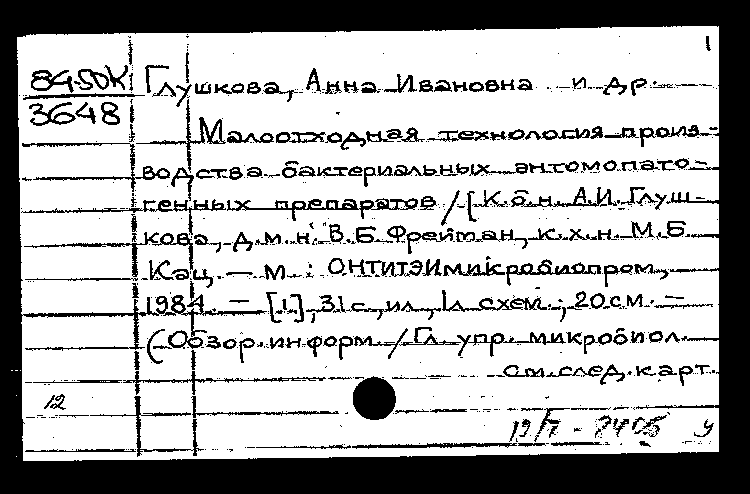 1
84-5DK Глушкова, Анна Ивановна и др.
3648
Малоотходная технология произ-
водства бактериальных энтомопато-
генных препаратов / [К.б.н. А.И. Глуш-
кова, д.м.н. В.Б. Фрейман, к.х.н. М.Б.
Кац. — М. : ОНТИТЭИмикробиопром,
1984. — [1], 31 с., ил., 1л. схем.; 20 см. —
(Обзор. информ. / Гл. упр. микробиол.
См. след. карт.
12